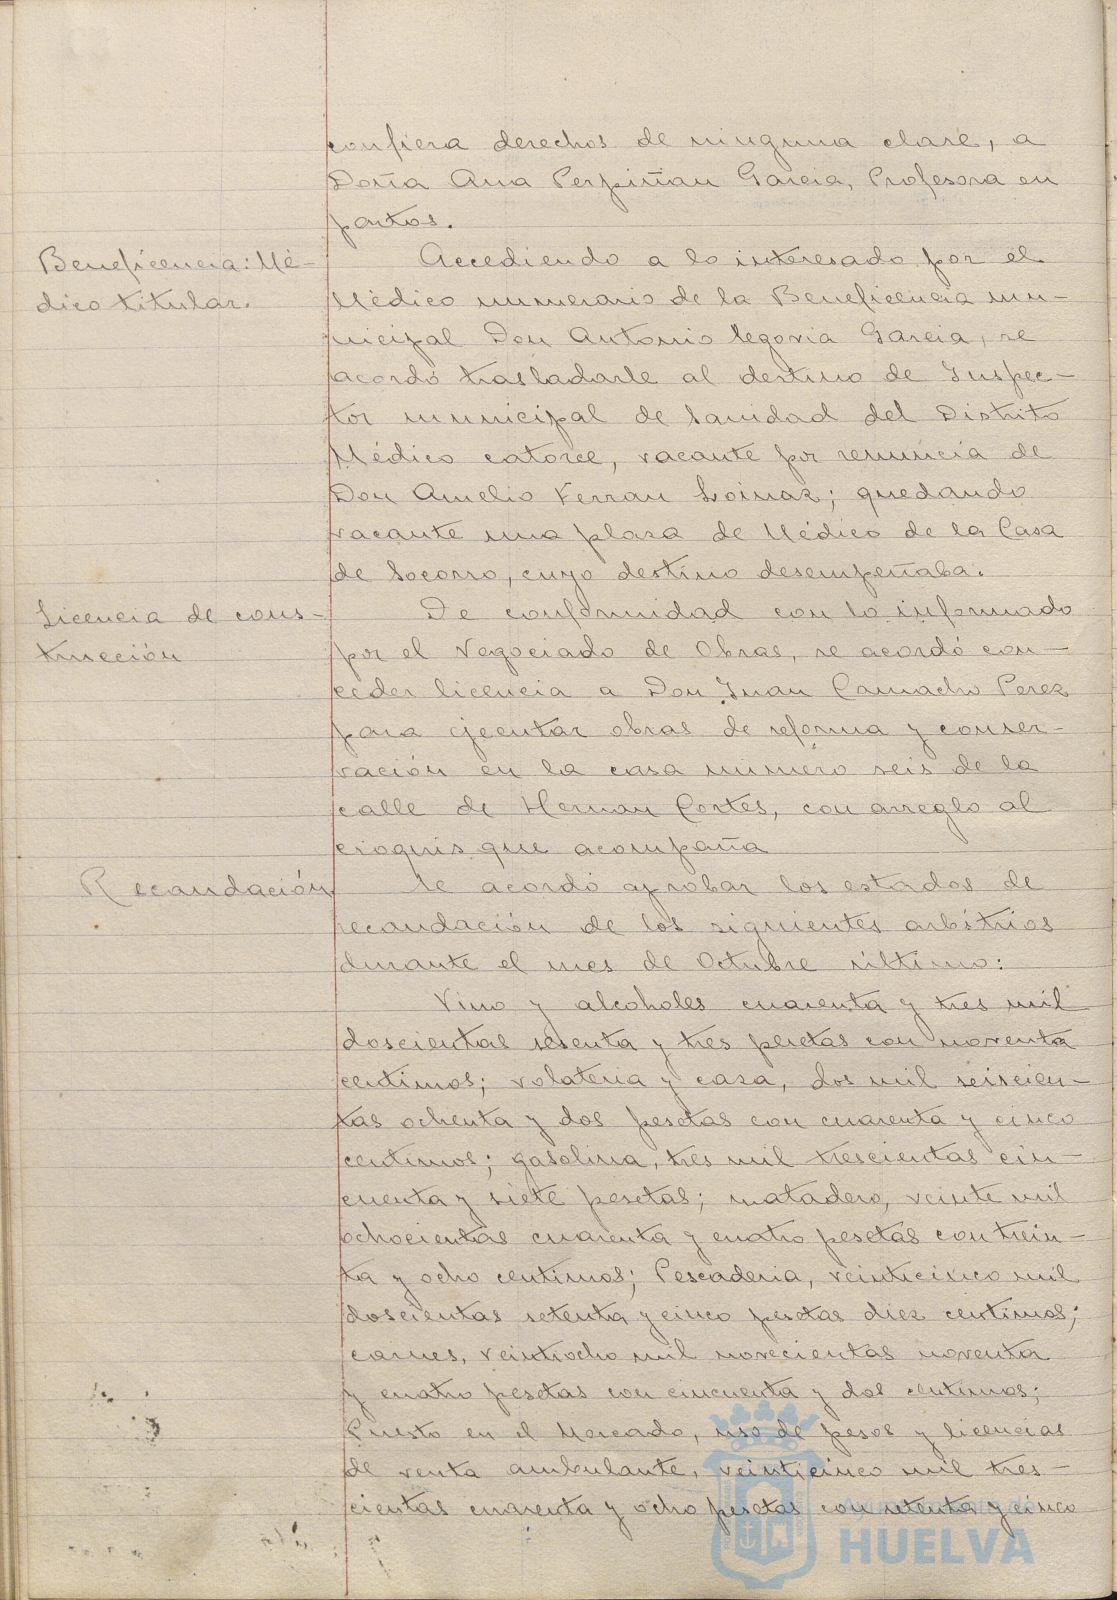 confiera derechos de ninguna clase, a
Doña Ana Perpiñan Garcia, Profesora en
partos.
Beneficencia: Mé-
dico titular.
Accediendo a lo interesado por el
Médico numerario de la Beneficencia mu-
nicipal Don Antonio Segovia Garcia, se
acordó trasladarle al destino de Inspec-
tor municipal de Sanidad del Distrito
Médico catorce, vacante por renuncia de
Don Amelio Ferran Loinaz; quedando
vacante una plaza de Médico de la Casa
de Socorro, cuyo destino desempeñaba.
Licencia de cons-
trucción
De conformidad con lo informado
por el Negociado de Obras, se acordó con-
ceder licencia a Don Juan Camacho Perez
para ejecutar obras de reforma y conser-
vación en la casa número seis de la
calle de Hernan Cortes, con arreglo al
croquis que acompaña
Recaudación
Se acordó aprobar los estados de
recaudación de los siguientes arbitrios
durante el mes de Octubre último:
Vino y alcoholes cuarenta y tres mil
doscientas sesenta y tres pesetas con noventa
centimos; volateria y caza, dos mil seiscien-
tas ochenta y dos pesetas con cuarenta y cinco
centimos; gasolina, tres mil trescientas cin-
cuenta y siete pesetas; matadero, veinte mil
ochocientas cuarenta y cuatro pesetas con trein-
ta y ocho centimos; Pescaderia, veinticinco mil
doscientas setenta y cinco pesetas diez centimos;
carnes, veintiocho mil novecientas noventa
y cuatro pesetas con cincuenta y dos centimos;
Puesto en el Mercado, uso de pesos y licencias
de venta ambulante, veinticinco mil tres-
cientas cuarenta y ocho pesetas con setenta y cinco
Ayuntamiento de
HUELVA